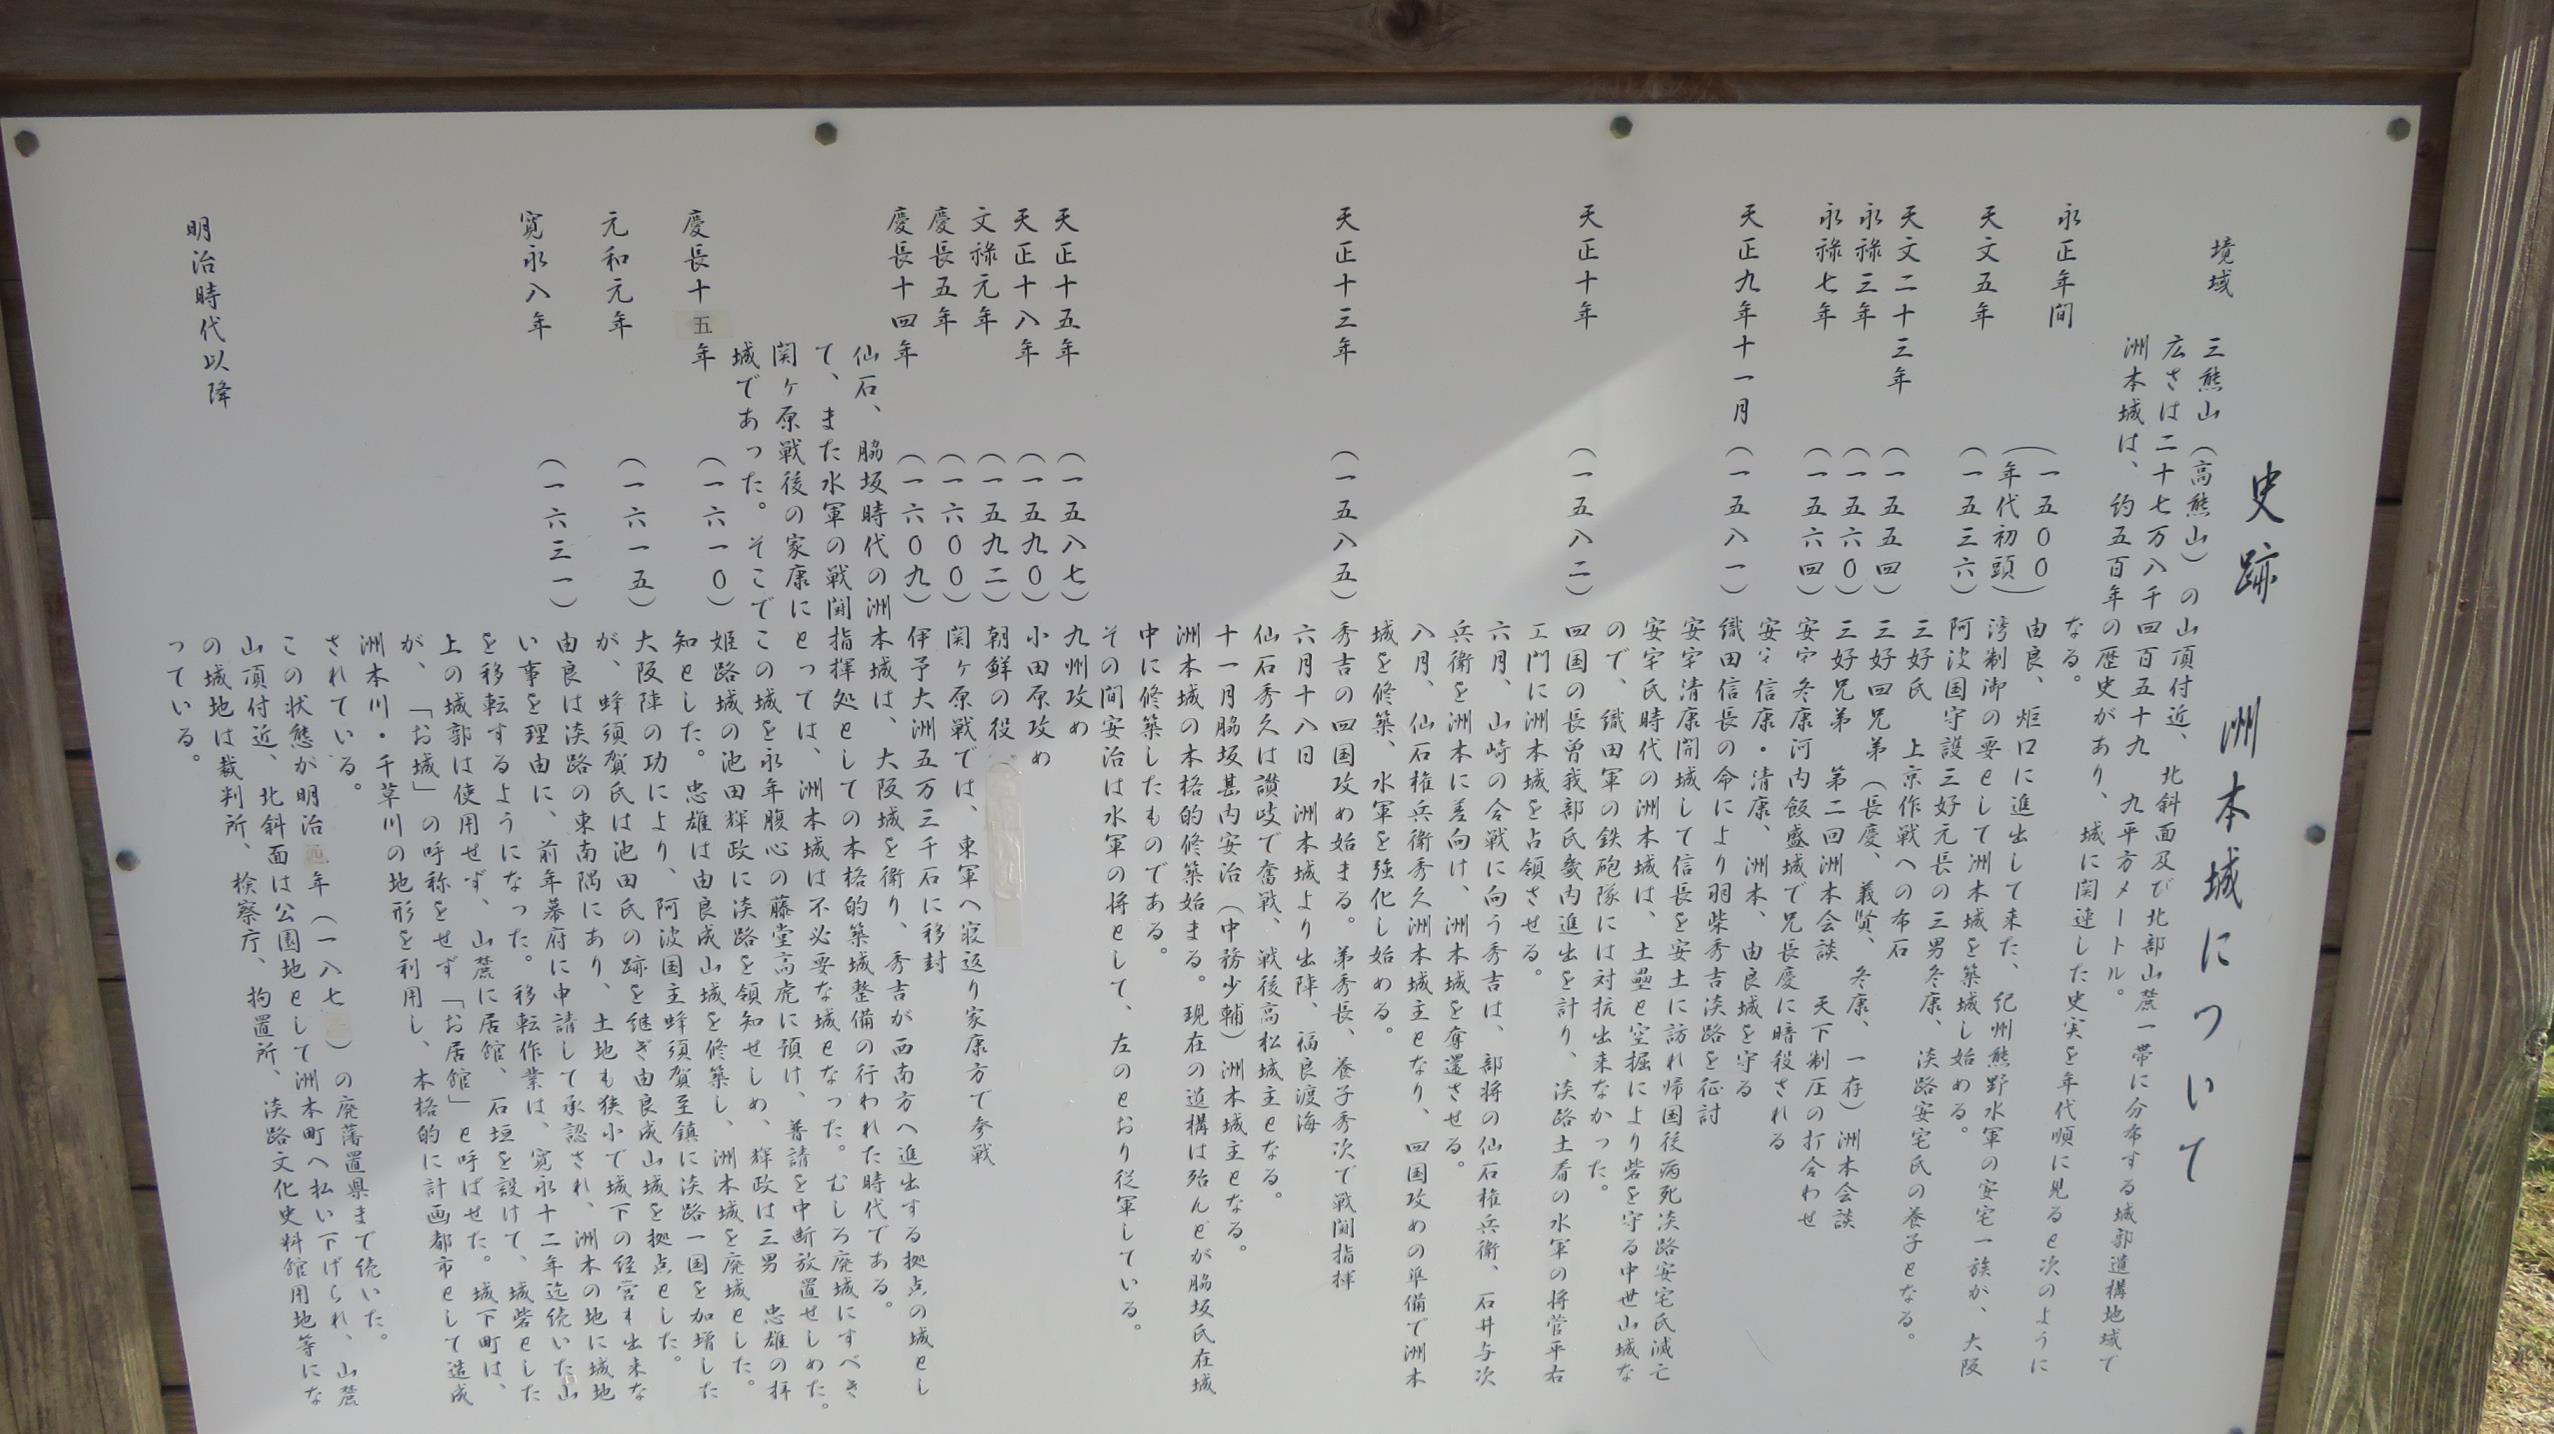 史跡 洲本城について
境域 三熊山(高熊山)の山頂付近、北斜面及び北部山麓一帯に分布する城郭遺構地域で
広さは二十七万八千四百五十九 九平方メートル。
洲本城は、約五百年の歴史があり、城に関連した史実を年代順に見ると次のように
なる。
永正年間 (一五〇〇) 由良、炬口に進出して来た、紀州熊野水軍の安宅一族が、大阪
(年代初頭) 湾制御の要として洲本城を築城し始める。
天文五年 (一五三六) 阿波国守護三好元長の三男冬康、淡路安宅氏の養子となる。
三好氏 上京作戦への布石
天文二十三年 (一五五四) 三好四兄弟(長慶、義賢、冬康、一存)洲本会談
永禄三年 (一五六〇) 三好兄弟 第二回洲本会談 天下制圧の打合わせ
永禄七年 (一五六四) 安宅冬康河内飯盛城で兄長慶に暗殺される
安宅信康・清康、洲本、由良城を守る
天正九年十一月 (一五八一) 織田信長の命により羽柴秀吉淡路を征討
安宅清康開城して信長を安土に訪れ帰国後病死淡路安宅氏滅亡
安宅氏時代の洲本城は、土塁と空掘により砦を守る中世山城な
ので、織田軍の鉄砲隊には対抗出来なかった。
天正十年 (一五八二) 四国の長曽我部氏畿内進出を計り、淡路土着の水軍の将菅平右
エ門に洲本城を占領させる。
六月、山崎の合戦に向う秀吉は、部将の仙石権兵衛、石井与次
兵衛を洲本に差向け、洲本城を奪還させる。
八月、仙石権兵衛秀久洲本城主となり、四国攻めの準備で洲本
城を修築、水軍を強化し始める。
天正十三年 (一五八五) 秀吉の四国攻め始まる。弟秀長、養子秀次で戦闘指揮
六月十八日 洲本城より出陣、福良渡海
仙石秀久は讃岐で奮戦、戦後高松城主となる。
十一月脇坂甚内安治(中務少輔)洲本城主となる。
洲本城の本格的修築始まる。現在の遺構は殆んどが脇坂氏在城
中に修築したものである。
その間安治は水軍の将として、左のとおり従軍している。
天正十五年 (一五八七) 九州攻め
天正十八年 (一五九〇) 小田原攻め
文禄元年 (一五九二) 朝鮮の役
慶長五年 (一六〇〇) 関ヶ原戦では、東軍へ寝返り家康方で参戦
慶長十四年 (一六〇九) 伊予大洲五万三千石に移封
仙石、脇坂時代の洲本城は、大阪城を衛り、秀吉が西南方へ進出する拠点の城とし
て、また水軍の戦闘指揮処としての本格的築城整備の行われた時代である。
関ヶ原戦後の家康にとっては、洲本城は不必要な城となった。むしろ廃城にすべき
城であった。そこでこの城を永年腹心の藤堂高虎に預け、普請を中断放置せしめた。
慶長十五年 (一六一〇) 姫路城の池田輝政に淡路を領知せしめ、輝政は三男 忠雄の拝
知とした。忠雄は由良成山城を修築し、洲本城を廃城とした。
元和元年 (一六一五) 大阪陣の功により、阿波国主蜂須賀至鎮に淡路一国を加増した
が、蜂須賀氏は池田氏の跡を継ぎ由良成山城を拠点とした。
寛永八年 (一六三一) 由良は淡路の東南隅にあり、土地も狭小で城下の経営も出来な
い事を理由に、前年幕府に申請して承認され、洲本の地に城地
を移転するようになった。移転作業は、寛永十二年迄続いた山
上の城郭は使用せず、山麓に居館、石垣を設けて、城砦とした
が、「お城」の呼称をせず「お居館」と呼ばせた。城下町は、
洲本川・千草川の地形を利用し、本格的に計画都市として造成
されている。
明治時代以降 この状態が明治 年(一八七 )の廃藩置県まで続いた。
山頂付近、北斜面は公園地として洲本町へ払い下げられ、山麓
の城地は裁判所、検察庁、拘置所、淡路文化史料館用地等にな
っている。